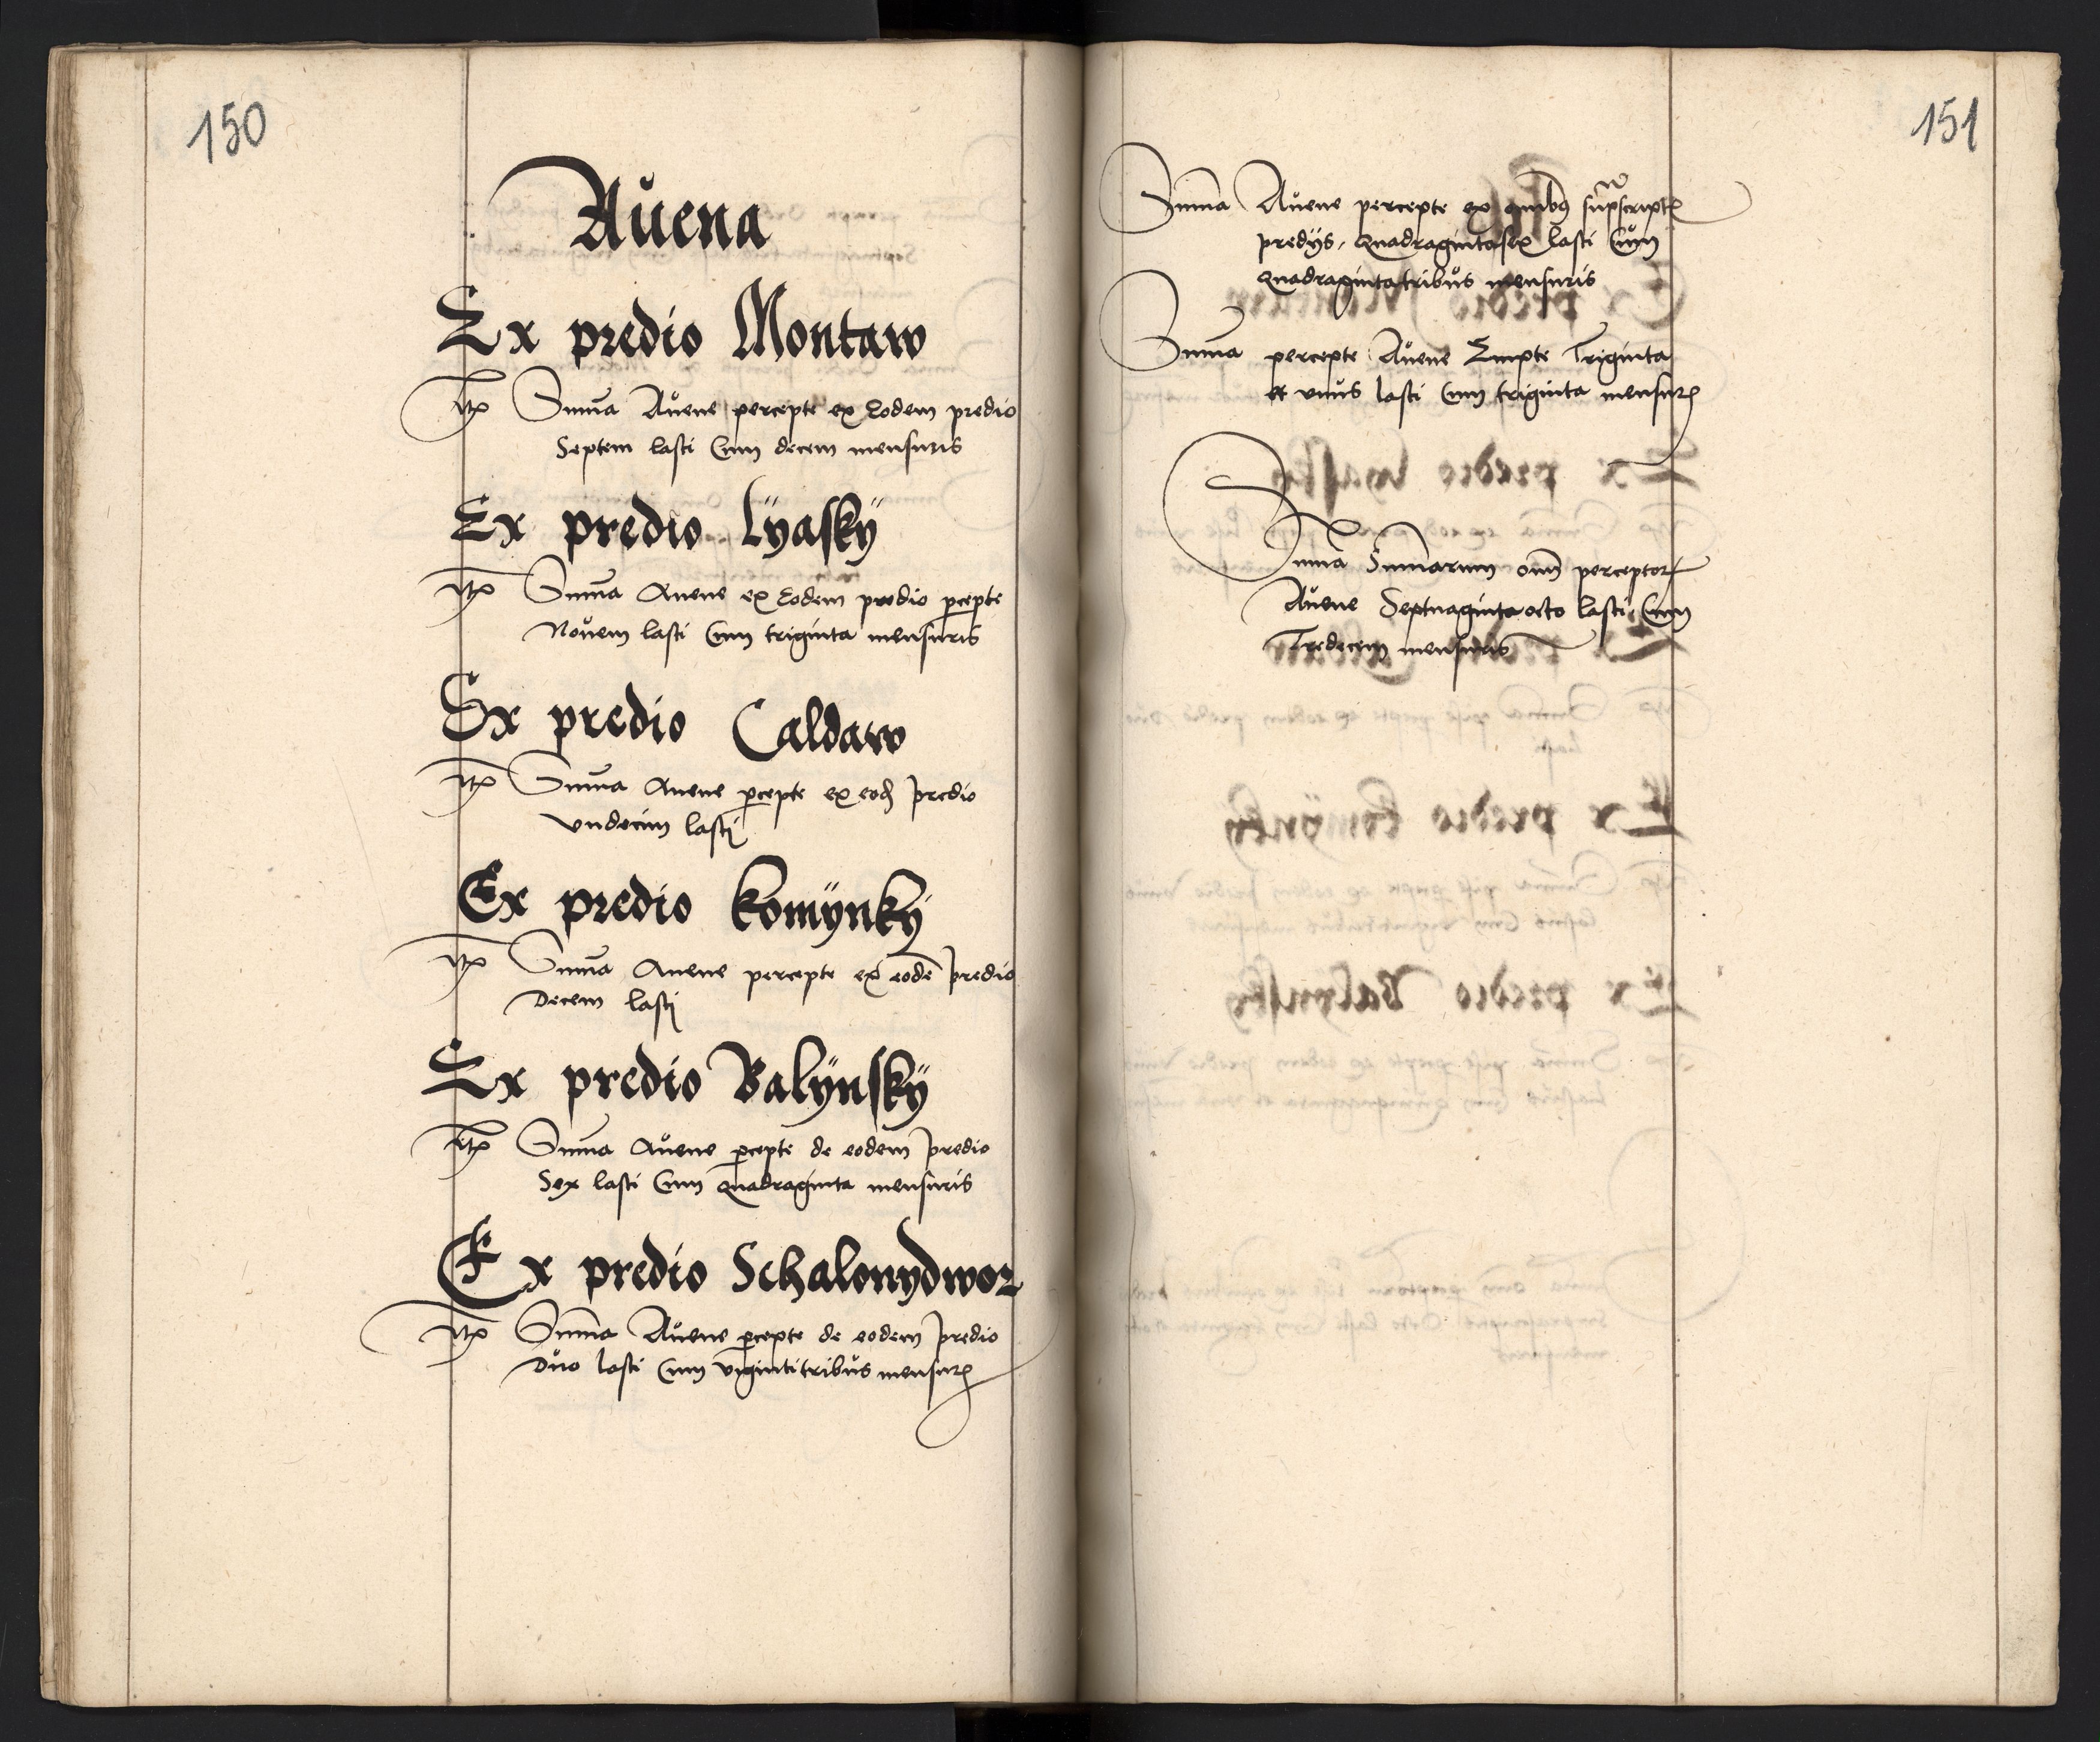 150
Auena
Ex predio Montaw
Itẽ Summa Auene percepte ex Eodem predio
Septem lasti Cum decem mensuris
Ex predio Lÿaskÿ
Itẽ Summa Auene ex Eodem predio ꝑcepte
Nouem lasti Cum triginta mensuris
Ex predio Caldaw
Itẽ Summa Auene ꝑcepte ex eod predio
vndecim lasti
Ex predio komÿnkÿ
Itẽ Summa Auene percepte ex eodē predio
Decem lasti
Ex predio Balÿnskÿ
Itẽ Summa Auene ꝑcepte de eodem predio
Sex lasti Cum Quadraginta mensuris
Ex predio Schalonydwor
Itẽ Summa Auene ꝑcepte de eodem predio
Duo lasti Cum vigintitribus mensurꝭ
151
Summa Auene percepte ex omibꝫ supͣscriptꝭ
predÿs, Quadragintasex lasti Cum
Quadragintatribus mensuris
Summa percepte Auene Empte Triginta
et vnus lasti Cum triginta mensurꝭ
Summa Summarum omī perceptorꝭ
Auene Septuagintaocto lasti Cum
Tredecem mensuris